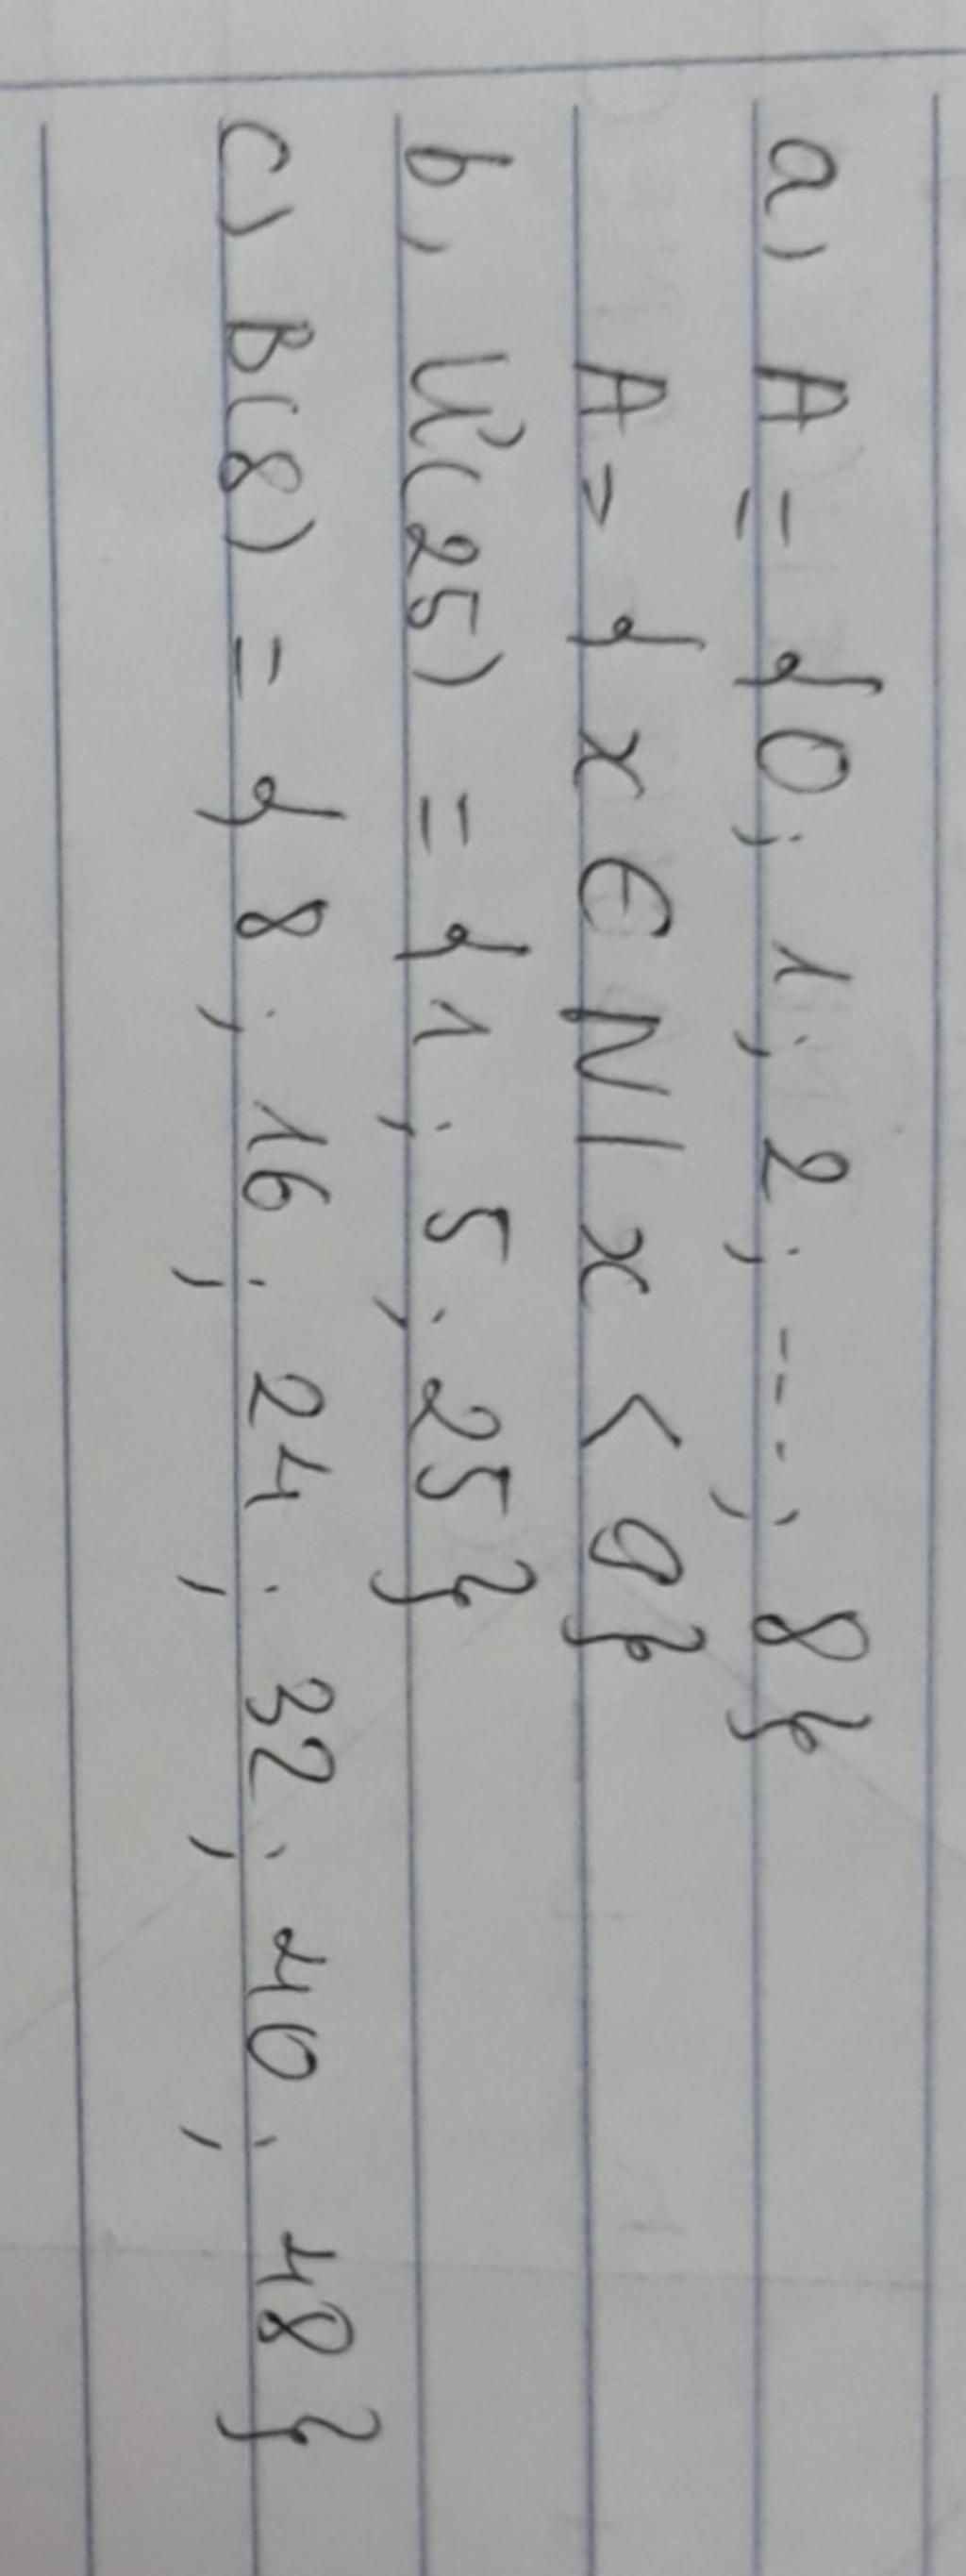 a, A = {0; 1; 2; ...; 8}
A = {x ∈ N | x < 9}
b, Ư(25) = {1; 5; 25}
c, B(8) = {8; 16; 24; 32; 40; 48}